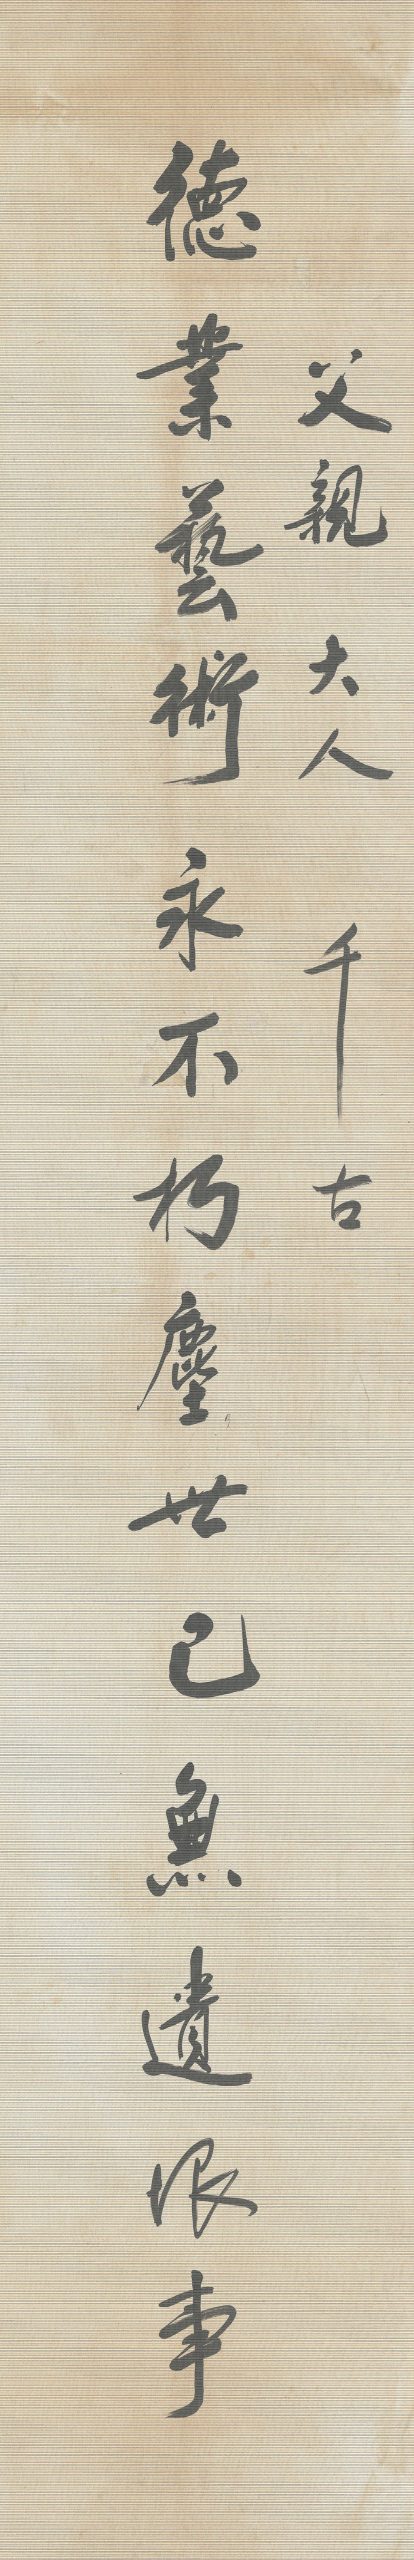 父親大人 千古
德業藝術永不朽塵世已無遺恨事